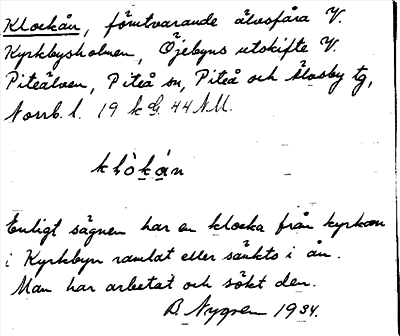 Klockån, förutvarande älvsfåra V.
Kyrkbysholmen, Öjebyns utskifte V.
Piteälven, Piteå sn, Piteå och Älvsby tg,
Norrb. l. 19 k G. 44 NM.
klòkån
Enligt sägnen har en klocka från kyrkan
i Kyrkbyn ramlat eller sänkts i ån.
Man har arbetat och sökt den.
B. Nygren 1934.